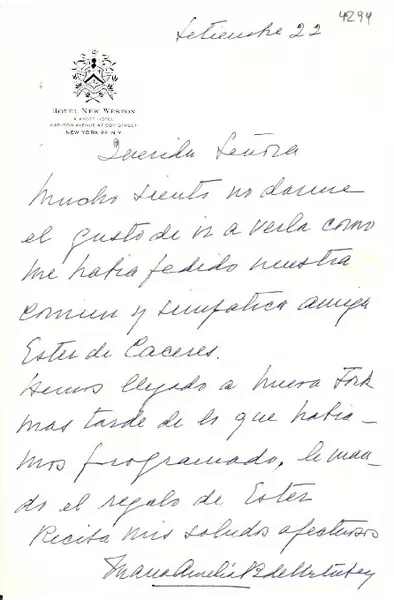 4294
Setiembre 22
HOTEL NEW WESTON
A KNOTT HOTEL
MADISON AVENUE AT 50TH STREET
NEW YORK 22, N.Y.
Querida Señora
Mucho siento no darme
el gusto de ir a verla como
me habia pedido nuestra
comun y simpatica amiga
Ester de Caceres.
Hemos llegado a Nueva York
mas tarde de lo que habia-
mos programado, le man-
do el regalo de Ester
Reciba mis saludos afectuosos
Maria Amelia